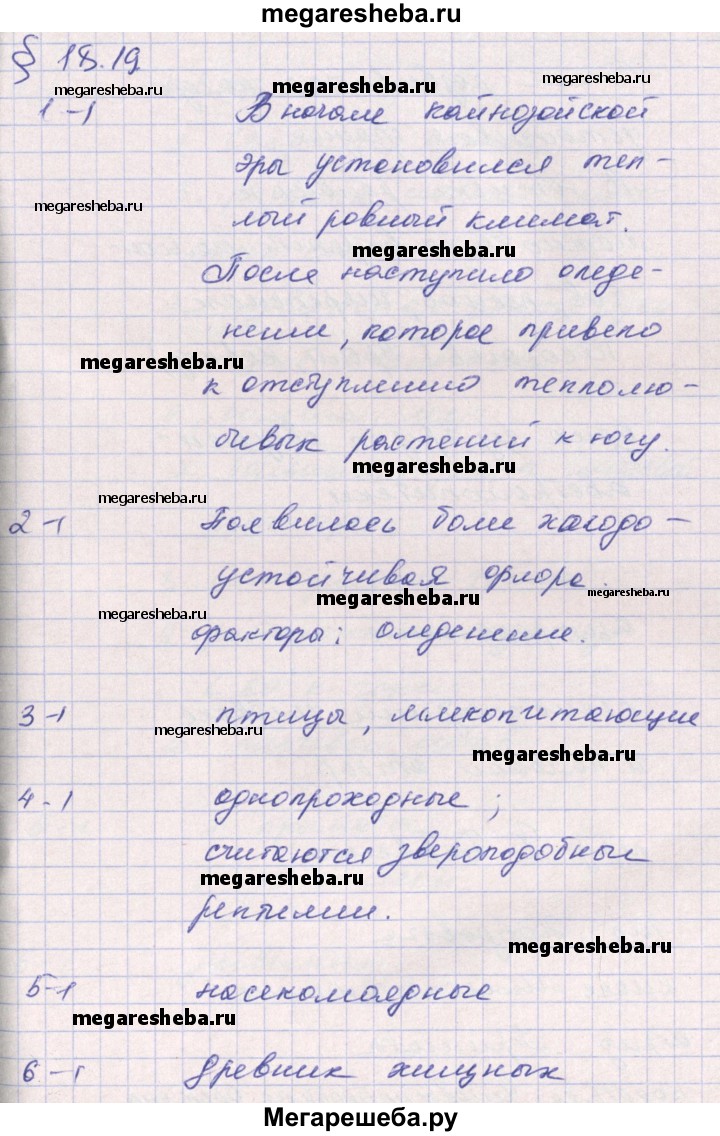 megaresheba.ru
§ 18.19
megaresheba.ru
megaresheba.ru
megaresheba.ru
1-1 В начале кайнозойской
эры установился теп-
megaresheba.ru
лый ровный климат.
megaresheba.ru
После наступило оледе-
нение, которое привело
megaresheba.ru
к отступлению теплолю-
бивых растений к югу.
megaresheba.ru
megaresheba.ru
2-1 Появилось более холодо-
устойчивая флора.
megaresheba.ru
megaresheba.ru
megaresheba.ru
факторы: оледенение.
3-1 птицы, млекопитающие
megaresheba.ru
megaresheba.ru
4-1 однопроходные;
считаются звероподобные
megaresheba.ru
рептилии.
megaresheba.ru
5-1 насекомоядные
megaresheba.ru
6-1 древних хищных
Мегарешеба.ру